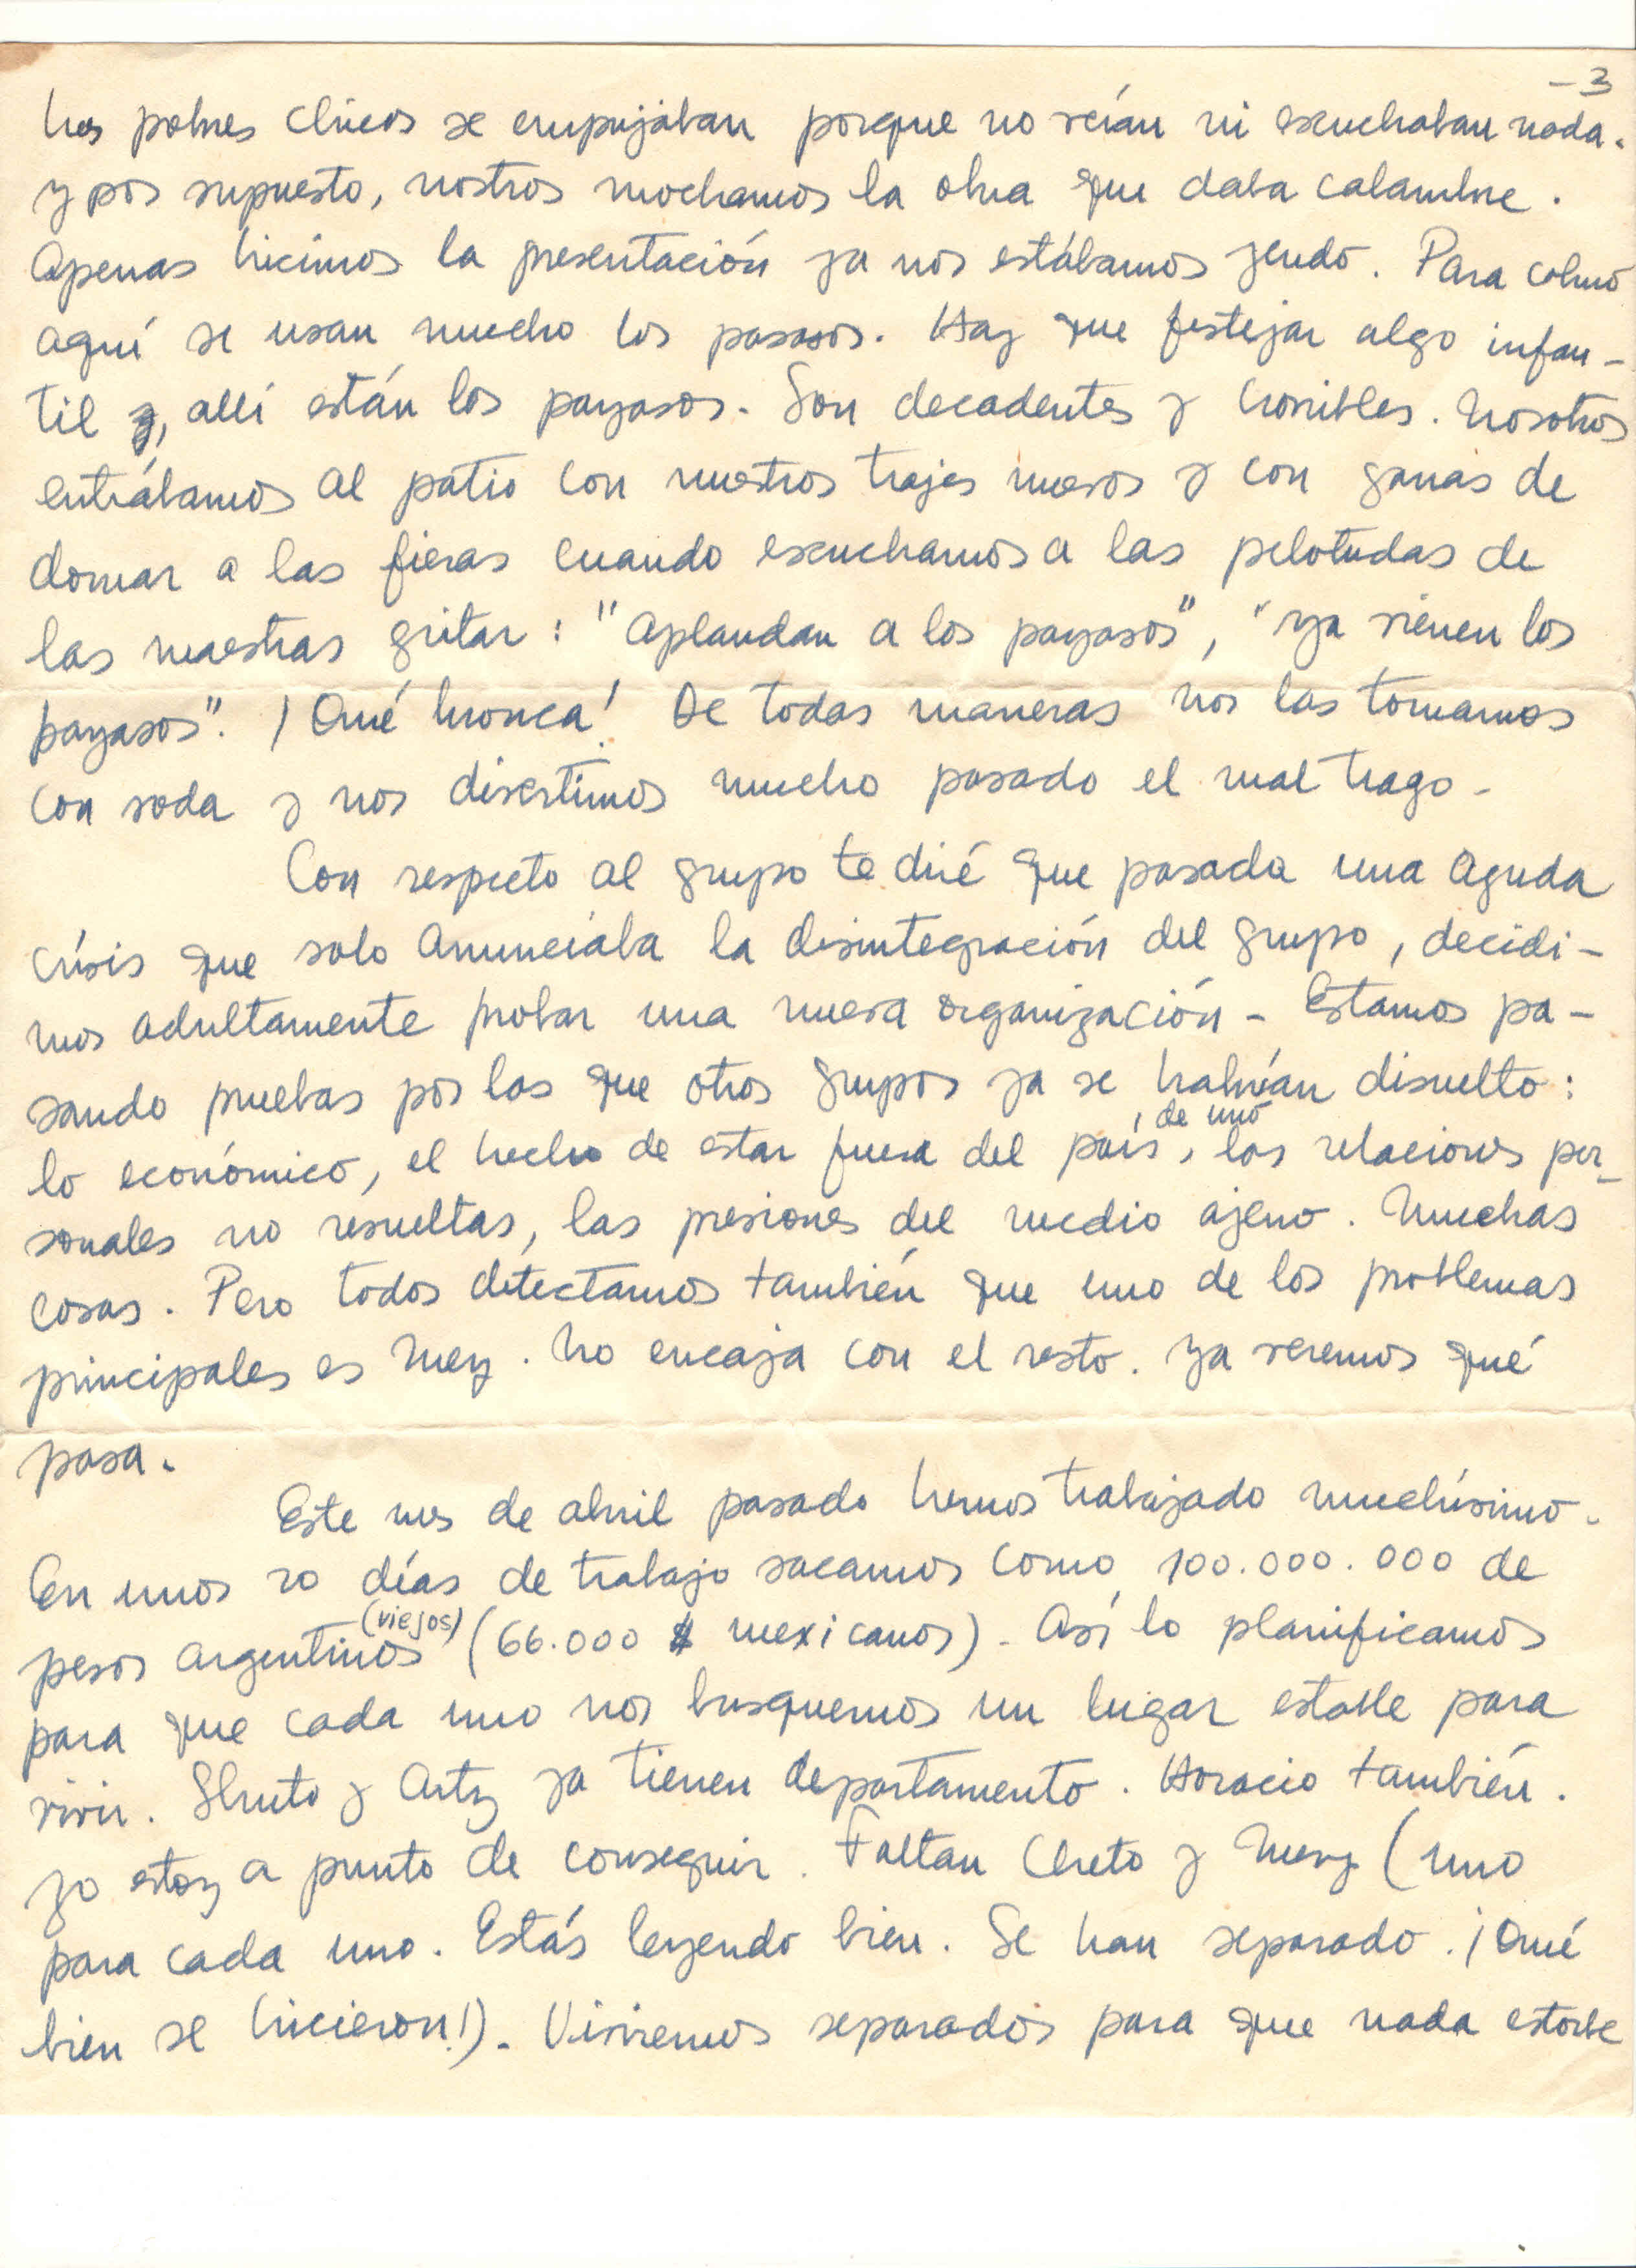 - 3
Los pobres chicos se empujaban porque no veían ni escuchaban nada.
y por supuesto, nostros mochamos la obra que daba calambre.
Apenas hicimos la presentación ya nos estábamos yendo. Para colmo
aquí se usan mucho los payasos. Hay que festejar algo infan-
til, allí están los payasos. Son decadentes y horribles. Nosotros
entrábamos al patio con nuestros trajes nuevos y con ganas de
domar a las fieras cuando escuchamos a las pelotudas de
las maestras gritar: "Aplaudan a los payasos", "ya vienen los
payasos". ¡Qué bronca! De todas maneras nos las tomamos
con soda y nos divertimos mucho pasado el mal trago -
Con respecto al grupo te diré que pasada una aguda
crísis que solo anunciaba la desintegración del grupo, decidi-
mos adultamente probar una nueva organización - Estamos pa-
sando pruebas por las que otros grupos ya se habrían disuelto:
lo económico, el hecho de estar fuera del país, de uno, las relaciones per-
sonales no resueltas, las presiones del medio ajeno. Muchas
cosas. Pero todos detectamos también que uno de los problemas
principales es Mery. No encaja con el resto. Ya veremos qué
pasa.
Este mes de abril pasado hemos trabajado muchísimo.
En unos 20 días de trabajo sacamos como 100.000.000 de
pesos argentinos (viejos) (66.000 $ mexicanos) - Así lo planificamos
para que cada uno nos busquemos un lugar estable para
vivir. Shuto y Arty ya tienen departamento. Horacio también.
Yo estoy a punto de conseguir. Faltan Cheto y Mery (uno
para cada uno. Estás leyendo bien. Se han separado. ¡Qué
bien se hicieron!). Viviremos separados para que nada estorbe